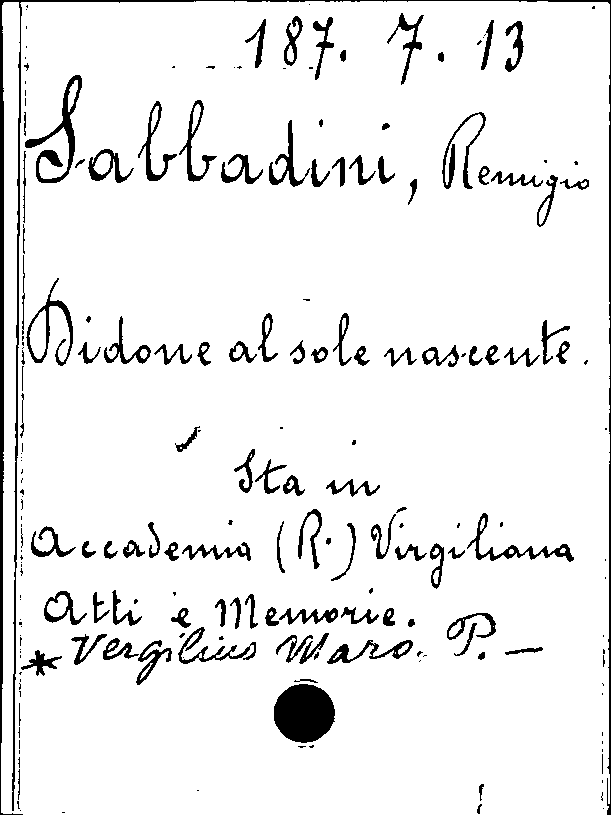 187. 7. 13
Sabbadini, Remigio
Didone al sole nascente.
Sta in
Accademia (R.) Virgiliana
Atti e Memorie.
* Vergilius Maro. P. —